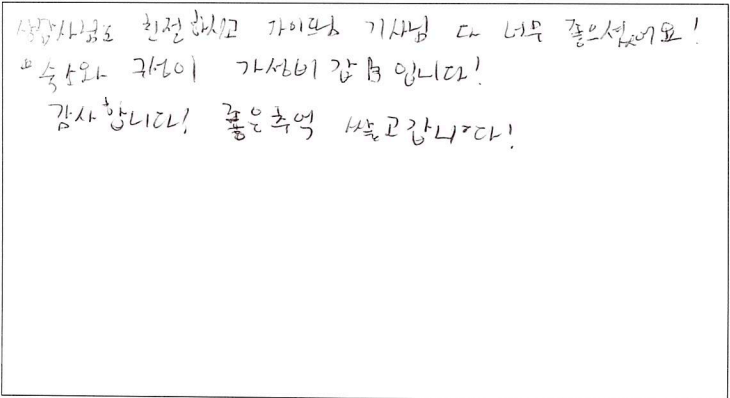 친절하시고 가이드님 기사님 다 너무 좋으셨어요!
숙소와 구성이 가성비 갑 입니다!
감사합니다! 좋은추억 쌓고갑니다!